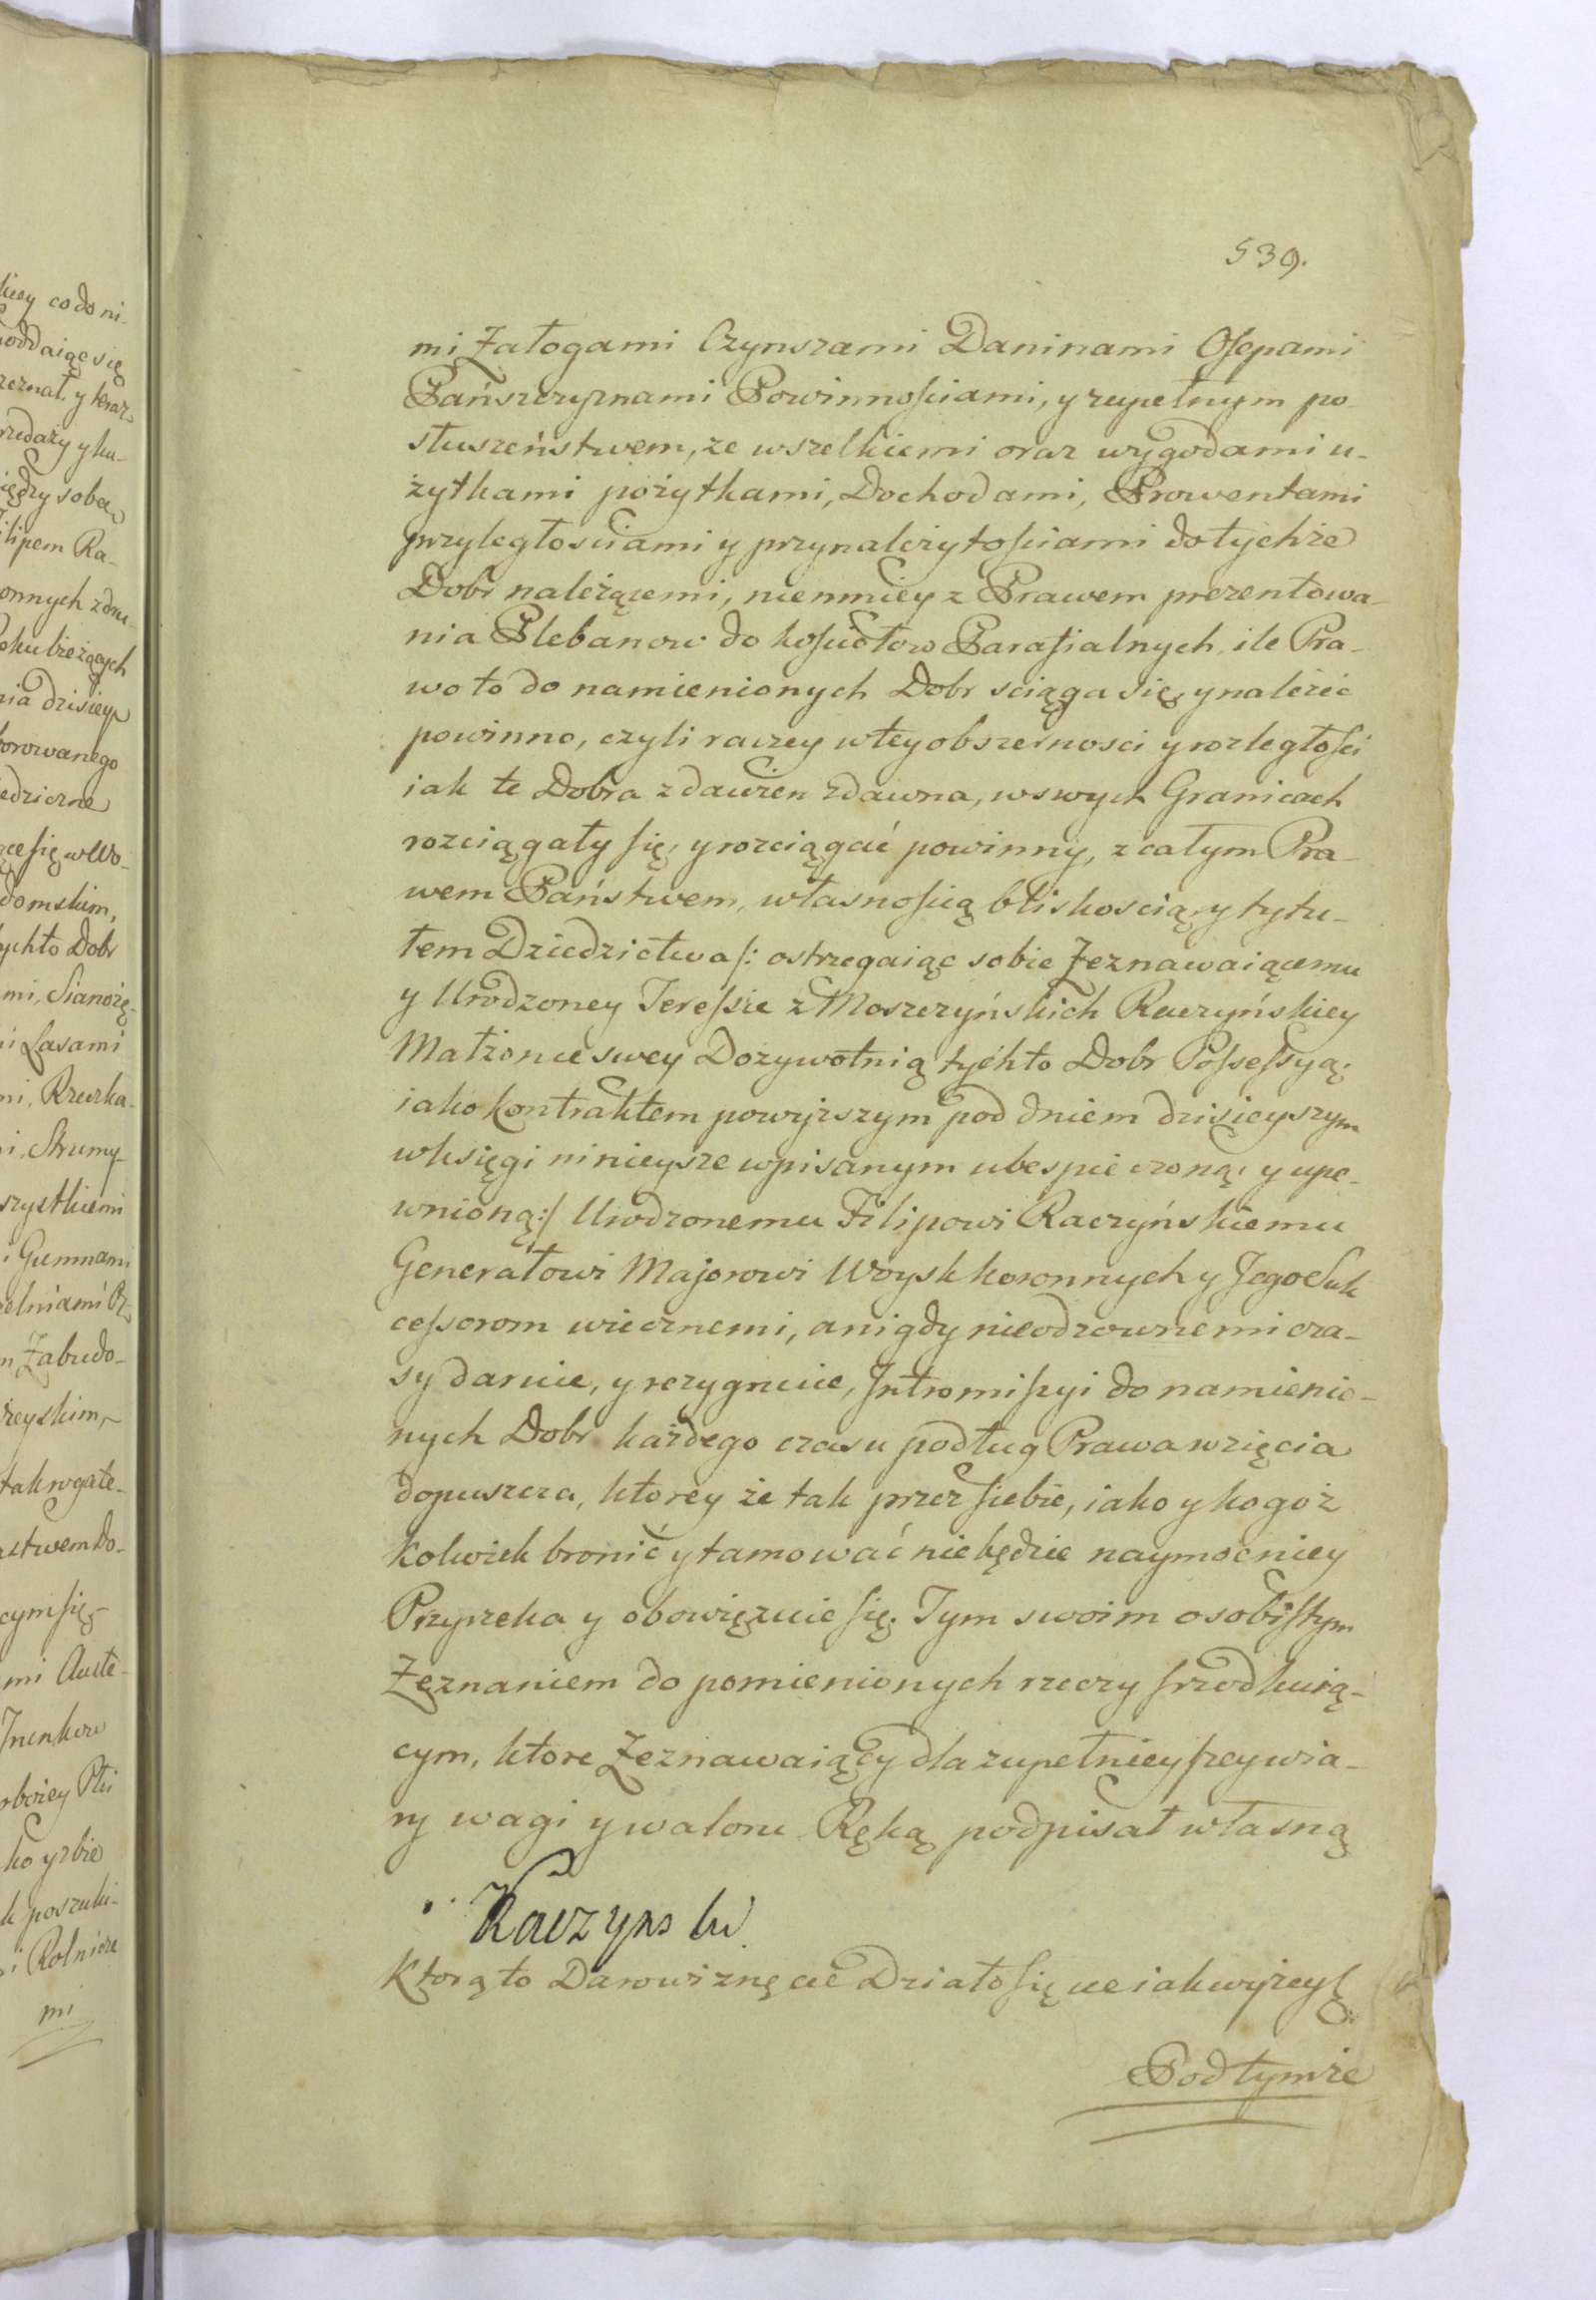 539.
mi Załogami Czynszami Daninami Osepami
Pańszczyznami Powinnościami, y zupełnym po-
słuszeństwem, ze wszelkiemi oraz wygodami u-
żytkami pożytkami, Dochodami, Prowentami
przyległościami y przynależytościami do tychże
Dobr należącemi, niemniey z Prawem prezentowa-
nia Plebanow do kościołow Parafialnych, ile Pra-
wo to do namienionych Dobr sciąga się, y należeć
powinno, czyli raczey w tey obszerności y rozległości
iak te Dobra zdawien zdawna, w swych Granicach
rozciągały się, y rozciągać powinny, z całym Pra-
wem Państwem, własnością bliskością, y tytu-
łem Dziedzictwa /: ostrzegaiąc sobie Zeznawaiącemu
y Urodzoney Teressie z Moszczyńskich Raczyńskiey
Małżonce swey Dożywotnią tychto Dobr Possessyą;
iako kontraktem powyższym pod dniem dzisieyszym
w księgi ninieysze wpisanym ubespieczoną, y upe-
wnioną :/ Urodzonemu Filipowi Raczyńskiemu
Generałowi Majorowi Woysk koronnych y Jego Suk
cessorom wiecznemi, a nigdy nieodzownemi cza-
sy daruie, y rezygnuie, Intromissyi do namienio-
nych Dobr każdego czasu podług Prawa wzięcia
dopuszcza, ktorey że tak przez siebie, iako y kogoż
kolwiek bronić y tamować nie będzie naymocniey
Przyrzeka y obowięzuie się. Tym swoim osobistym
Zeznaniem do pomienionych rzeczy srzodkuią-
cym, ktore Zeznawaiący dla zupełnieyszey wia-
ry wagi y waloru Ręką podpisał własną
Raczynski
Ktorą to Darowiznę etc Działo się ut iak wyżey
Pod tymże
kiey co do ni-
poddaiąc się
zeznał, y teraz
rzedaży y ku-
iędzy sobą
ilipem Ra-
onnych z dnu-
oku bieżących
nia dzisieysz
borowanego
edziczne
ące się w Wo-
domskim,
tychto Dobr
mi, Sianożę-
i Lasami
mi, Rzeczka-
i, Strumy-
szystkiemi
i Gumnami
n Zabudo-
zeyskim,
tak w gate-
cym się
ko y zbie
k poszuki-
i Rolnicze
mi